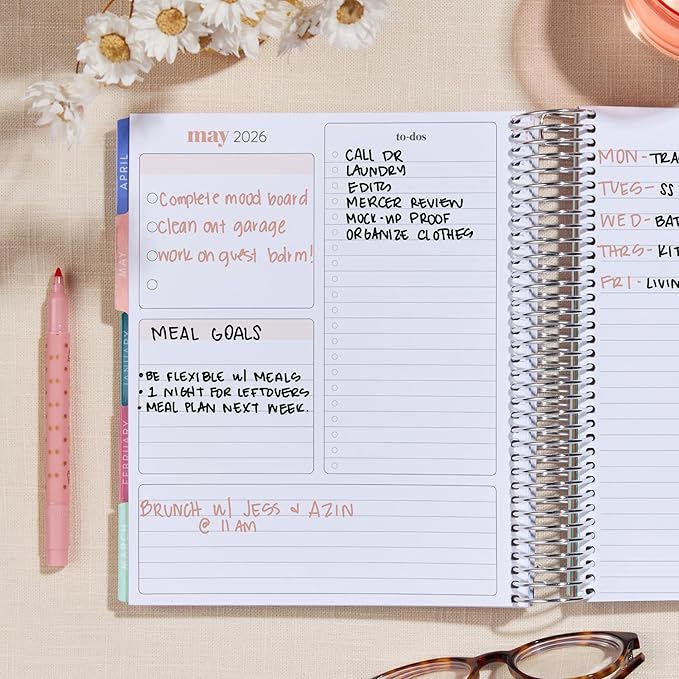 may 2026
Complete mood board
clean out garage
work on guest batrm!
MEAL GOALS
• BE FLEXIBLE W/ MEALS
• 1 NIGHT FOR LEFTOVERS
• MEAL PLAN NEXT WEEK.
BRUNCH W/ JESS & AZIN
@ 11 AM
to-dos
CALL DR
LAUNDRY
EDITS
MERCER REVIEW
MOCK-UP PROOF
ORGANIZE CLOTHES
MON - TRA
TUES - SS
WED - BAT
THRS - KIT
FRI - LIVIN
APRIL
MAY
JANUARY
FEBRUARY
MARCH